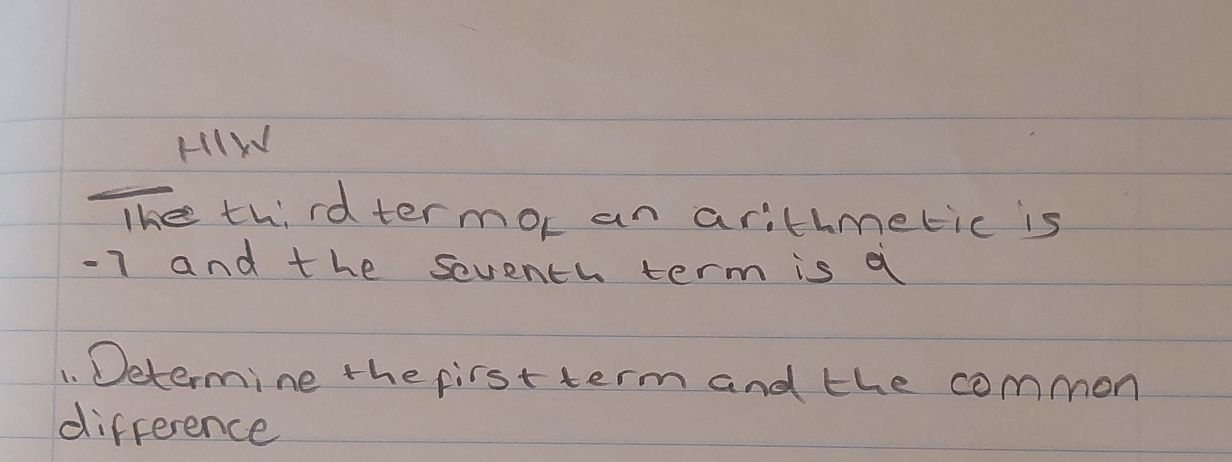 H/W
The third term of an arithmetic is
-7 and the seventh term is 9
1. Determine the first term and the common
difference